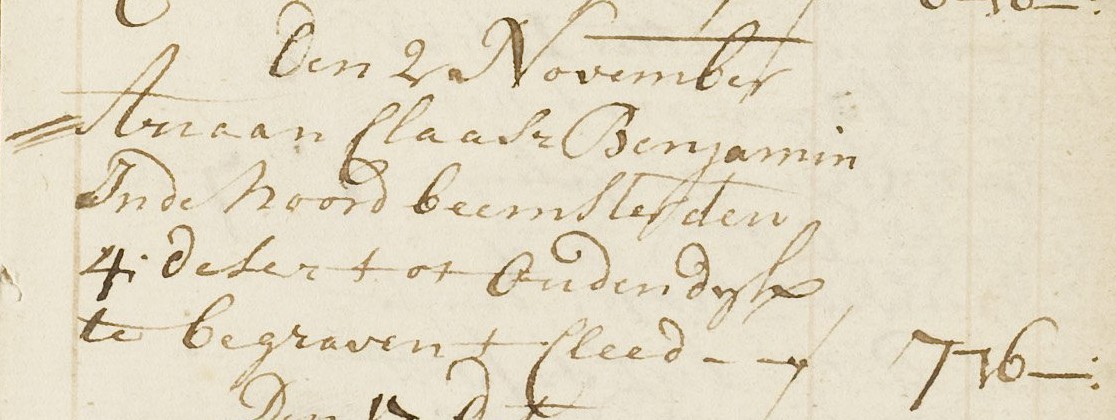 Den 2 November
Ariaan Claasz Benjamin
In de Noord beemster den
4: deser tot Oudendÿk
te begraven t Cleed - -
7-16-:
Den 17 d